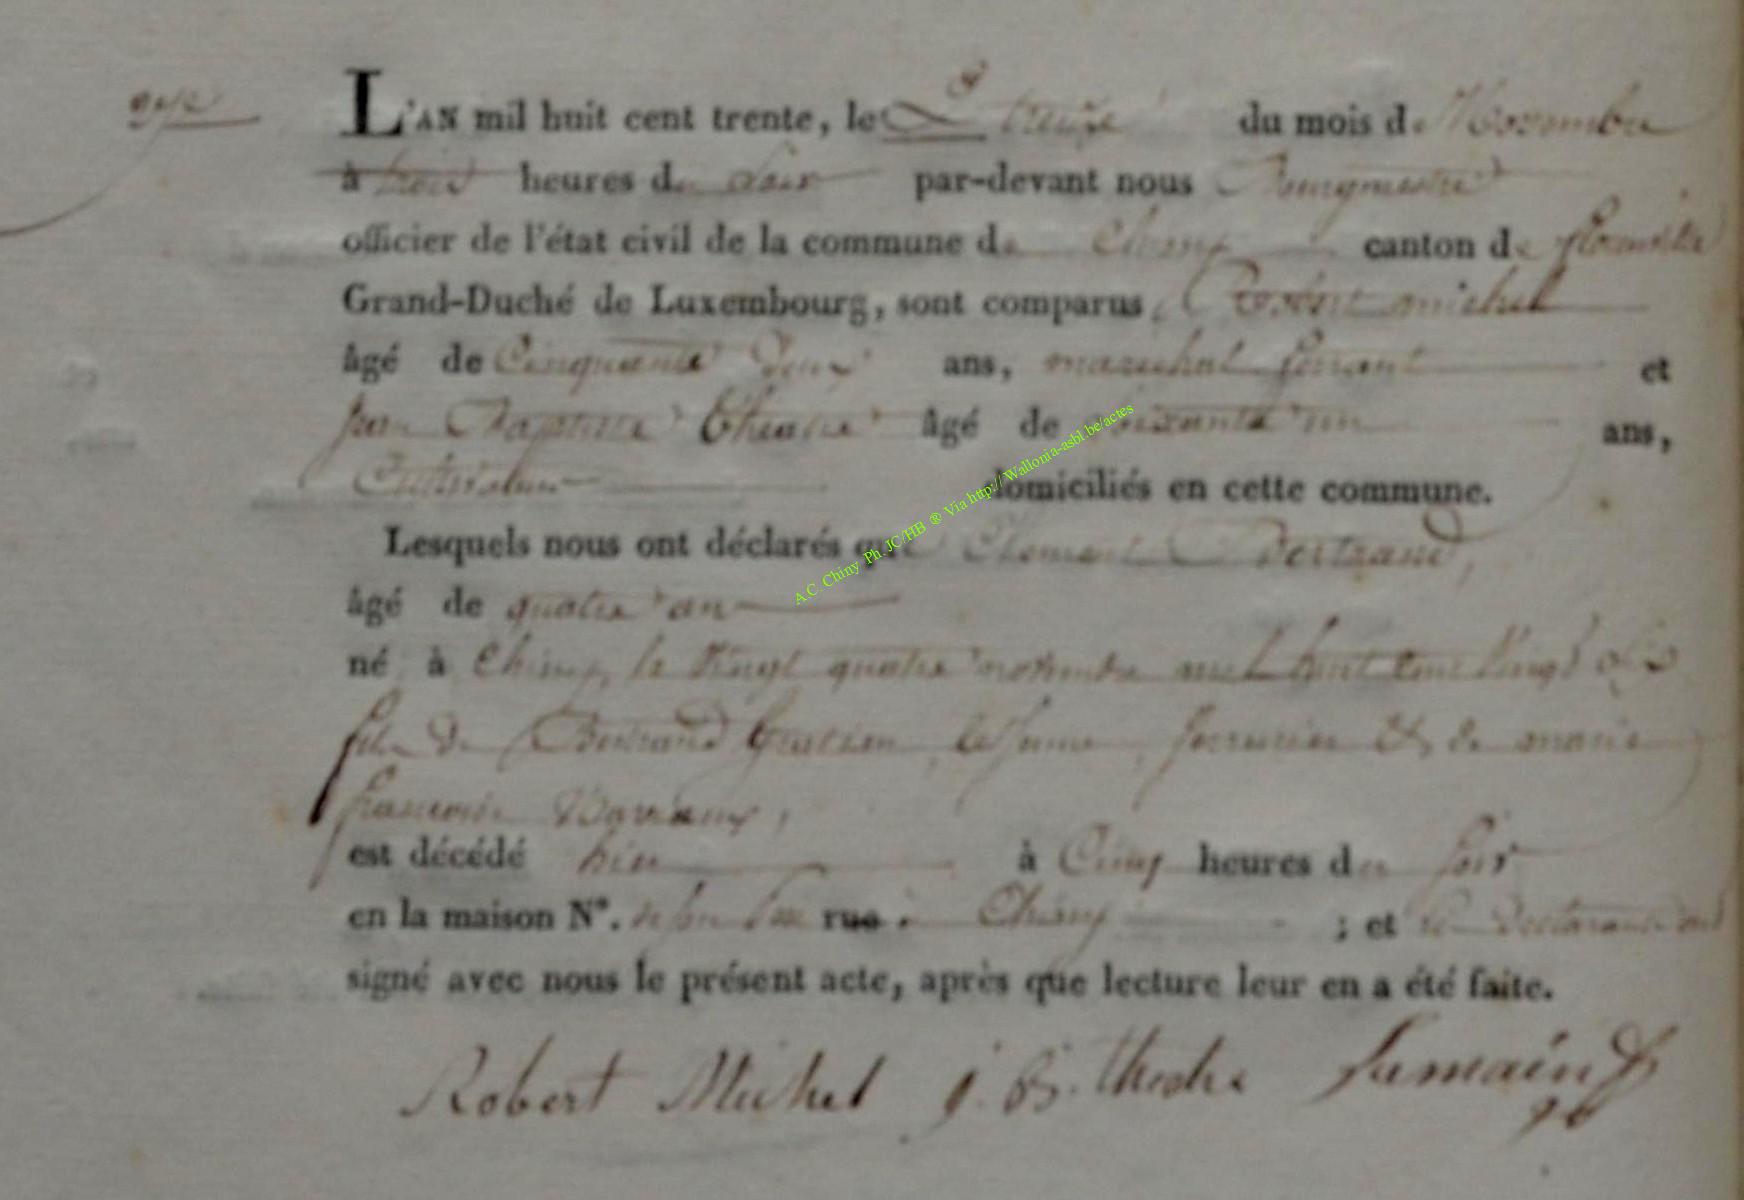 L'AN mil huit cent trente, le treize du mois de Novembre
à trois heures du soir par-devant nous Bourgmestre
officier de l'état civil de la commune de Chiny canton de florenville
Grand-Duché de Luxembourg, sont comparus Robert michel
âgé de Cinquante deux ans, marechal ferrant et
jean Baptiste âgé de soixante un ans,
Cultivateur domiciliés en cette commune.
Lesquels nous ont déclarés que Clement Bertrand,
âgé de quatre an
né à Chiny, le Vingt quatre novembre mil huit cent Vingt six
fils de Bertrand Gratien, le jeune, serrurier & de marie
francoise
est décédé hier à Cinq heures du soir
en la maison N°. de son rue à Chiny ; et les declarants ont
signé avec nous le présent acte, après que lecture leur en a été faite.
Robert Michel J. B.
A.C. Chiny Ph. JC/HB ® Via http://Wallonia-asbl.be/actes